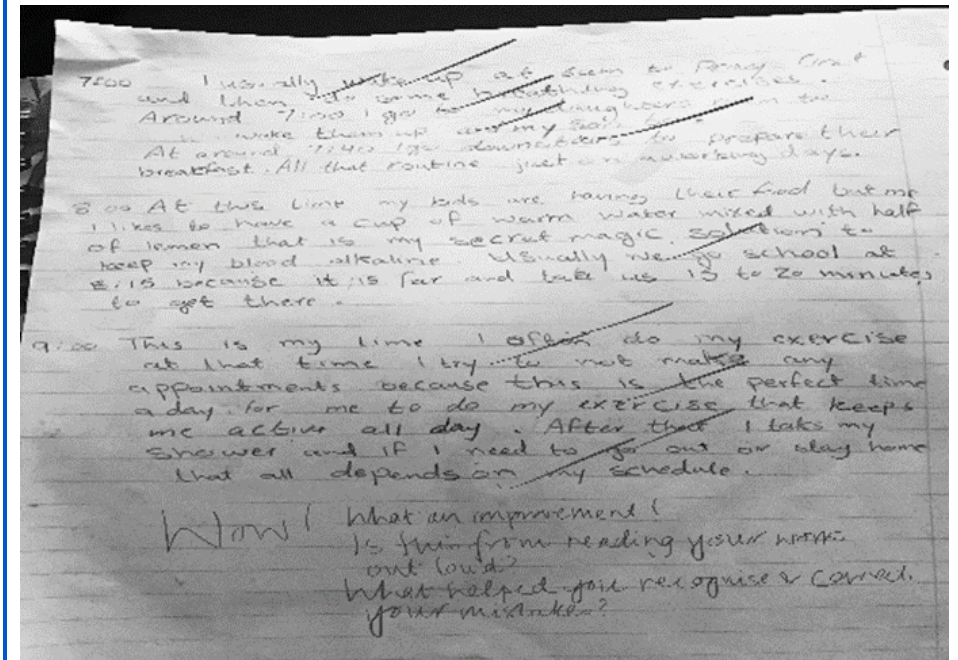 7:00 I usually wake up at 5am to pray first
and then do some breathing exercises.
Around 7:00 I go to my daughters room to
wake them up and my son too.
At around 7:40 I go downstairs to prepare their
breakfast. All that routine just on working days.
8:00 At this time my kids are having their food but me
I likes to have a cup of warm water mixed with half
of lemen that is my secret magic solution to
keep my blood alkaline. Usually we go school at
8:15 because it is far and take us 15 to 20 minutes
to get there.
9:00 This is my time I often do my exercise
at that time I try to not make any
appointments because this is the perfect time
a day for me to do my exercise that keeps
me active all day. After that I taks my
shower and if I need to go out or stay home
that all depends on my schedule.
Wow! What an improvement!
Is this from reading your work
out loud?
What helped you recognise & correct
your mistakes?